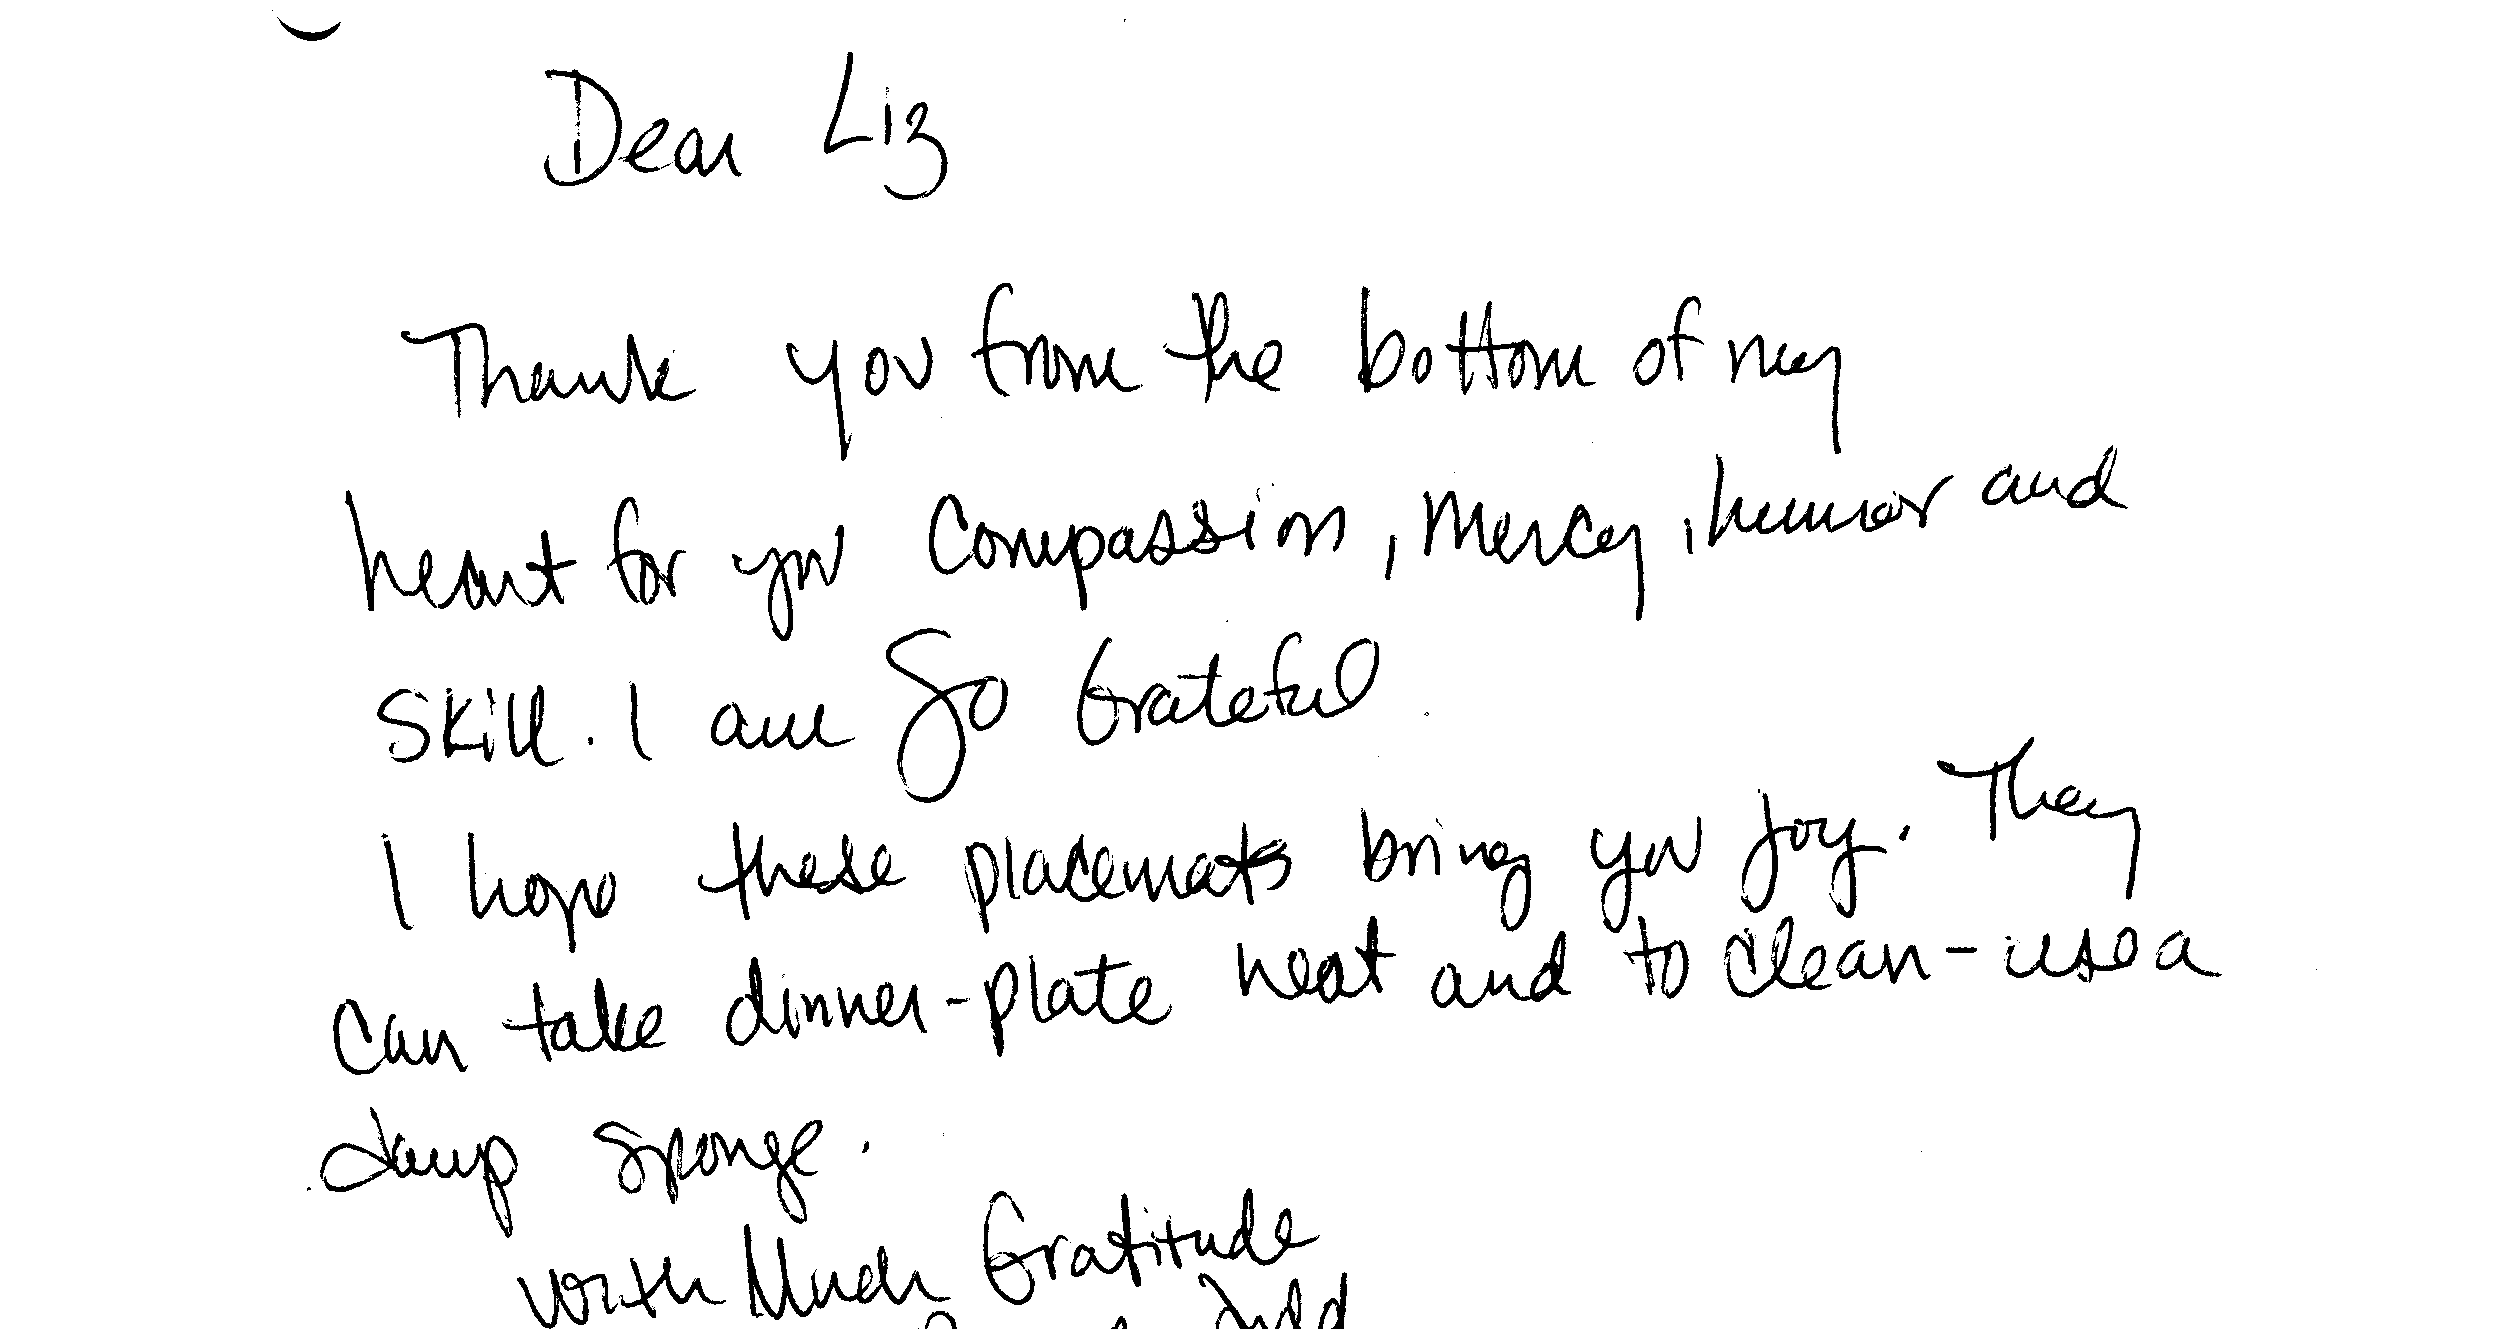 Dear Liz
Thank you from the bottom of my
heart for you Compassion, Mercy, humor and
skill. I am So Grateful.
I hope these placemats bring you joy. They
can take dinner-plate heat and to clean-use a
damp sponge.
With Much Gratitude